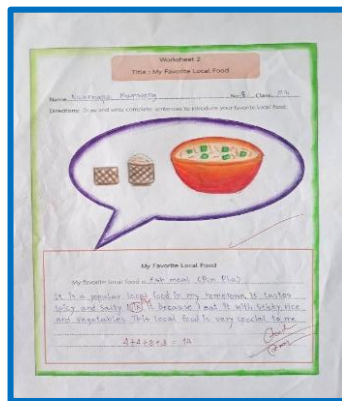 Worksheet 2
Title : My Favorite Local Food
Name No. 8 Class
Directions: Draw and write complete sentences to introduce your favorite local food.
My Favorite Local Food
My favorite local food is fish meal (Pon Pla)
It is a popular local food in my hometown is tastes
spicy and salty is because I eat it with sticky rice
and vegetables. This local food is very special to me
4+4+3+3 = 14
Good